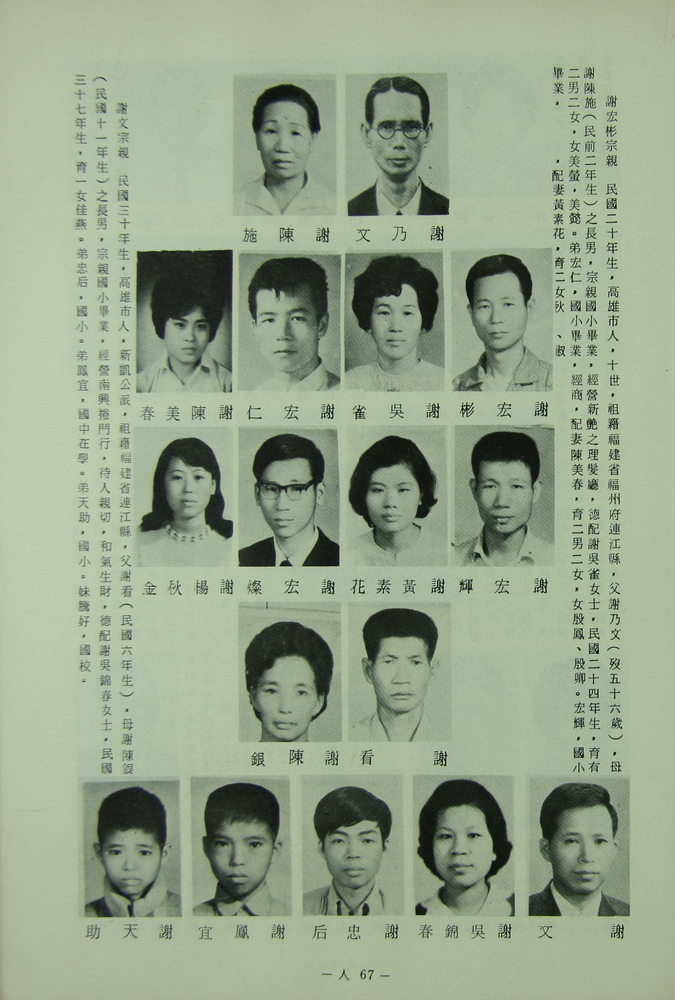 謝宏彬宗親　民國二十年生，高雄市人，十世，祖籍福建省福州府連江縣，父謝乃文（歿五十六歲），母
謝陳施（民前二年生）之長男，宗親國小畢業，經營新艷之理髮廳，德配謝吳雀女士，民國二十四年生，育有
二男二女，女美螢，美懿。弟宏仁，國小畢業，經商，配妻陳美春，育二男二女，女殷鳳、殷卿。宏輝，國小
畢業，　　，配妻黃素花，育二女秋　、淑
謝乃文
謝陳施
謝宏彬
謝吳雀
謝宏仁
謝陳美春
謝宏輝
謝黃素花
謝宏燦
謝楊秋金
謝看
謝陳銀
謝文
謝吳錦春
謝忠后
謝鳳宜
謝天助
謝文宗親　民國三十年生，高雄市人，新凱公派，祖籍福建省連江縣，父謝看（民國六年生），母謝陳銀
（民國十一年生）之長男，宗親國小畢業，經營南興捲門行，待人親切，和氣生財，德配謝吳錦春女士，民國
三十七年生，育一女佳燕。弟忠后，國小。弟鳳宜，國中在學。弟天助，國小。妹騰好，國校。
－人 67－